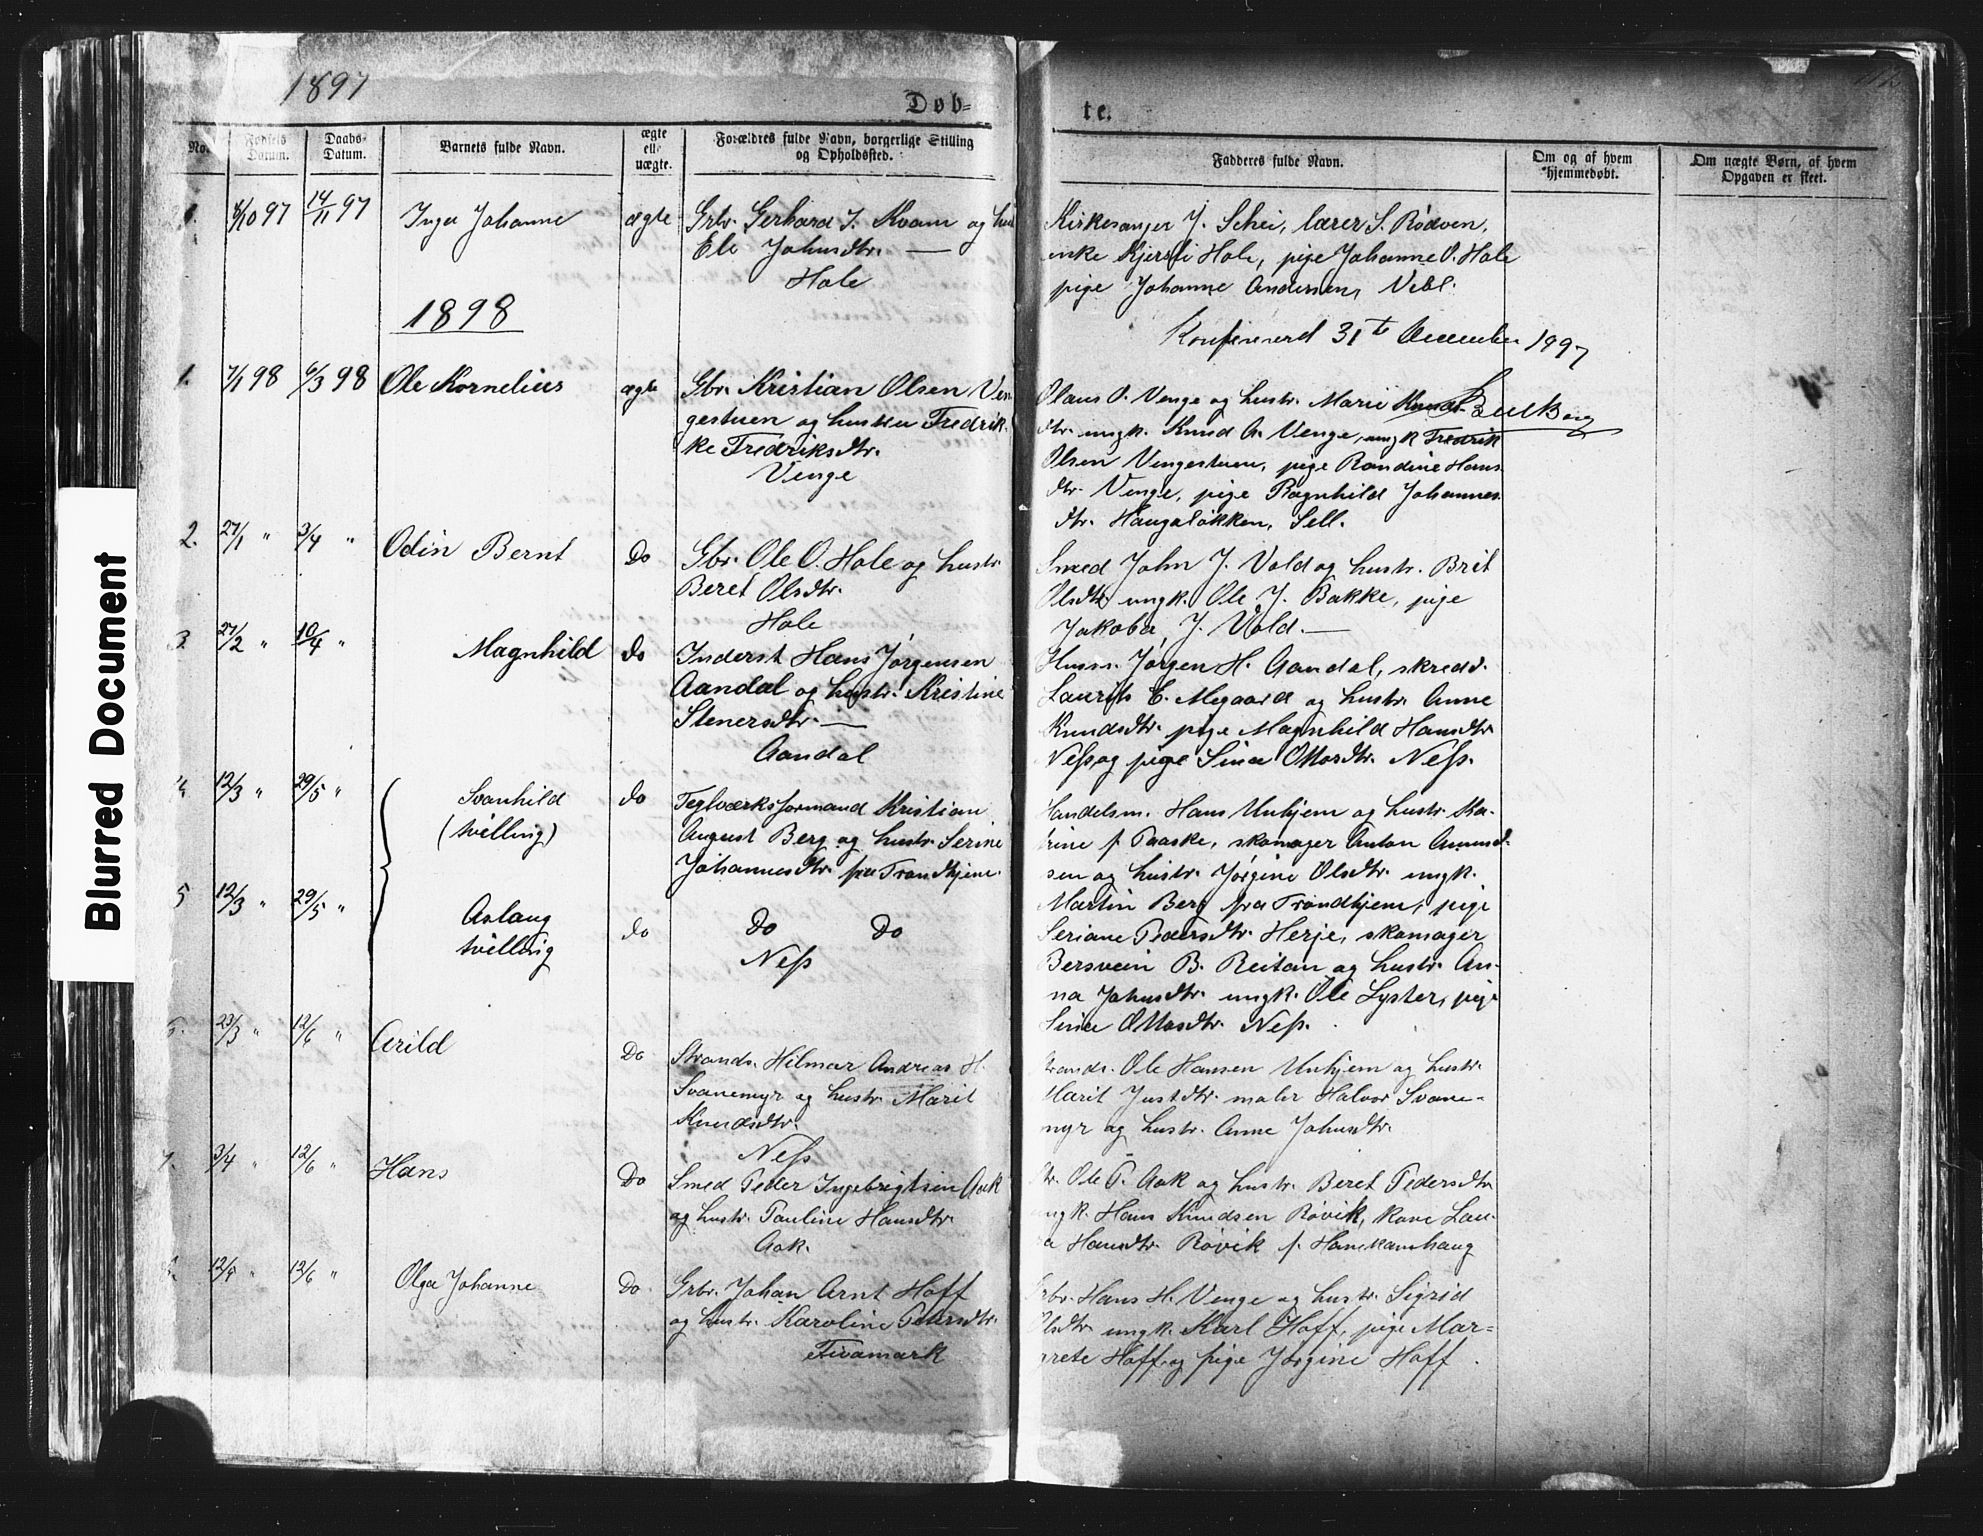 1897
Døb-
te.
No.
Fødsels Datum.
Daabs-Datum.
Barnets fulde Navn.
ægte ell. uægte.
Forældres fulde Navn, borgerlige Stilling
og Opholdssted.
Fadderes fulde Navn.
Om og af hvem
hjemmedøbt.
Om uægte Børn, af hvem
Opgaven er skeet.
/10 97 14/11 97 Inga Johanne ægte Grbr. Gerhard J. Kvam og hu
Ele Johnsdtr. —
Hole
Kirkesanger J. Schei, lærer S. Rødven,
enke Kjersti Hole, pige Johanne O. Hole
pige Johanne Andersen, Vebl.
Konfereret 31te December 1897
Bull Borg
1898
1. 7/1 98 6/3 98 Ole Kornelius ægte Gbr. Kristian Olsen Ven
gestuen og hustru Fredrik-
ke Fredriksdtr.
Venge
Olaus O. Venge og hustr. Marie Knuds
dtr. ungk. Knud A. Venge, ungk Fredrik
Olsen Vengestuen, pige Randine Hans
dtr. Venge, pige Ragnhild Johannes
dtr. Haugaløkken, Sell.
2. 27/1 " 3/4 " Odin Bernt Do Gbr. Ole O. Hole og hustr.
Beret Olsdtr.
Hole
Smed John J. Vold og hustr. Brit
Olsdtr. ungk. Ole J. Bakke, pige
Jakoba J. Vold. —
3 27/2 " 10/4 " Magnhild do Inderst Hans Jørgensen
Aandal og hustr. Kristine
Stenersdtr. —
Aandal
Husm. Jørgen H. Aandal, skredd.
Laurits E. Megaard og hustr. Anne
Knudsdtr. pige Magnhild Hansdtr
Ness og pige Sina Ottosdtr. Ness.
4 12/3 " 29/5 " Svanhild
(tvilling)
do Teglværksformand Kristian
August Berg og hustr. Serine
Johannesdtr. fra Trondhjem.
5 12/3 " 29/5 " Aslaug
tvilling
do Do Do
Ness
Handelsm. Hans Unhjem og hustr. Ka-
trine f. Paaske, skomager Anton Amund-
sen og hustr. Jørgine Olsdtr. ungk.
Martin Berg fra Trondhjem, pige
Seriane Pedersdtr. Herje, skomager
Bersvein B. Reitan og hustr. An-
na Johnsdtr. ungk. Ole Lyster, pige
Sina Ottosdtr. Ness.
6. 23/3 " 12/6 " Arild Do Strands. Hilmar Andreas H.
Svanemyr og hustr. Marit
Knudsdtr.
Ness
trands. Ole Hansen Unhjem og hustr.
Marit Justdtr. maler Halvor Svane-
myr og hustr. Anne Johnsdtr.
7. 3/4 " 12/6 " Hans Do Smed Peder Ingebrigtsen Aak
og hustr. Pauline Hansdtr.
Aak.
Ole P. Aak og hustr. Beret Pedersdtr
ungk. Hans Knudsen Røvik, kone Lau-
a Hansdtr. Røvik f. Hanekamhaug
12/4 " 12/6 " Olga Johanne Do Grbr. Johan Arnt Hoff
og hustr. Karoline Petersdtr.
Fivamark
rbr. Hans H. Venge og hustr. Sigrid
Olsdtr ungk. Karl Hoff, pige Mar-
grete Hoff og pige Jørgine Hoff.
Blurred Document